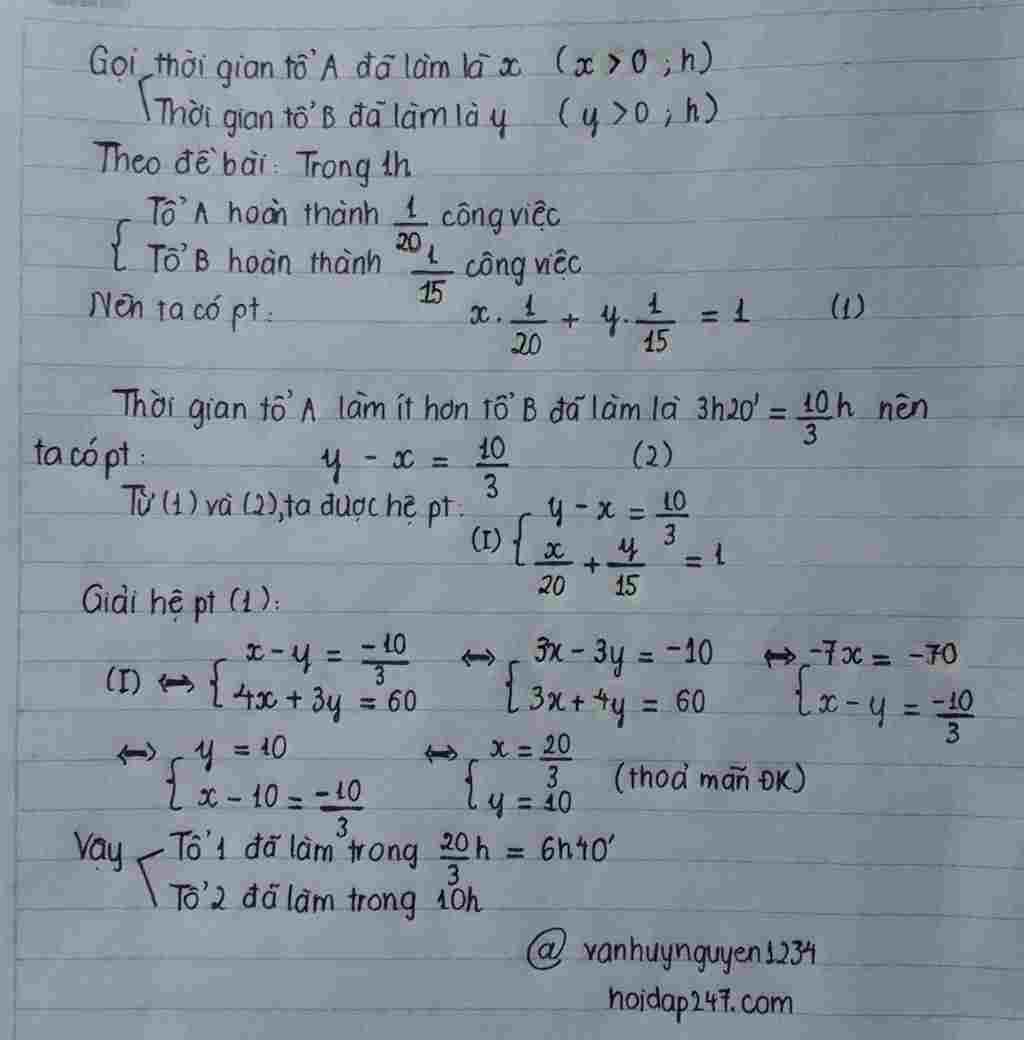 Gọi thời gian tổ A đã làm là x (x > 0 ; h)
Thời gian tổ B đã làm là y (y > 0 ; h)
Theo đề bài: Trong 1h
{ Tổ A hoàn thành 1/20 công việc
Tổ B hoàn thành 1/15 công việc
Nên ta có pt: x . 1/20 + y . 1/15 = 1 (1)
Thời gian tổ A làm ít hơn tổ B đã làm là 3h20' = 10/3 h nên
ta có pt: y - x = 10/3 (2)
Từ (1) và (2), ta được hệ pt: (I) { y - x = 10/3
x/20 + y/15 = 1
Giải hệ pt (1):
(I) ⇔ { x - y = -10/3 ⇔ { 3x - 3y = -10 ⇔ { -7x = -70
4x + 3y = 60 3x + 4y = 60 x - y = -10/3
⇔ { y = 10 ⇔ { x = 20/3 (thoả mãn ĐK)
x - 10 = -10/3 y = 10
Vậy Tổ 1 đã làm trong 20/3 h = 6h40'
Tổ 2 đã làm trong 10h
@ vanhuynguyen1234
hoidap247.com